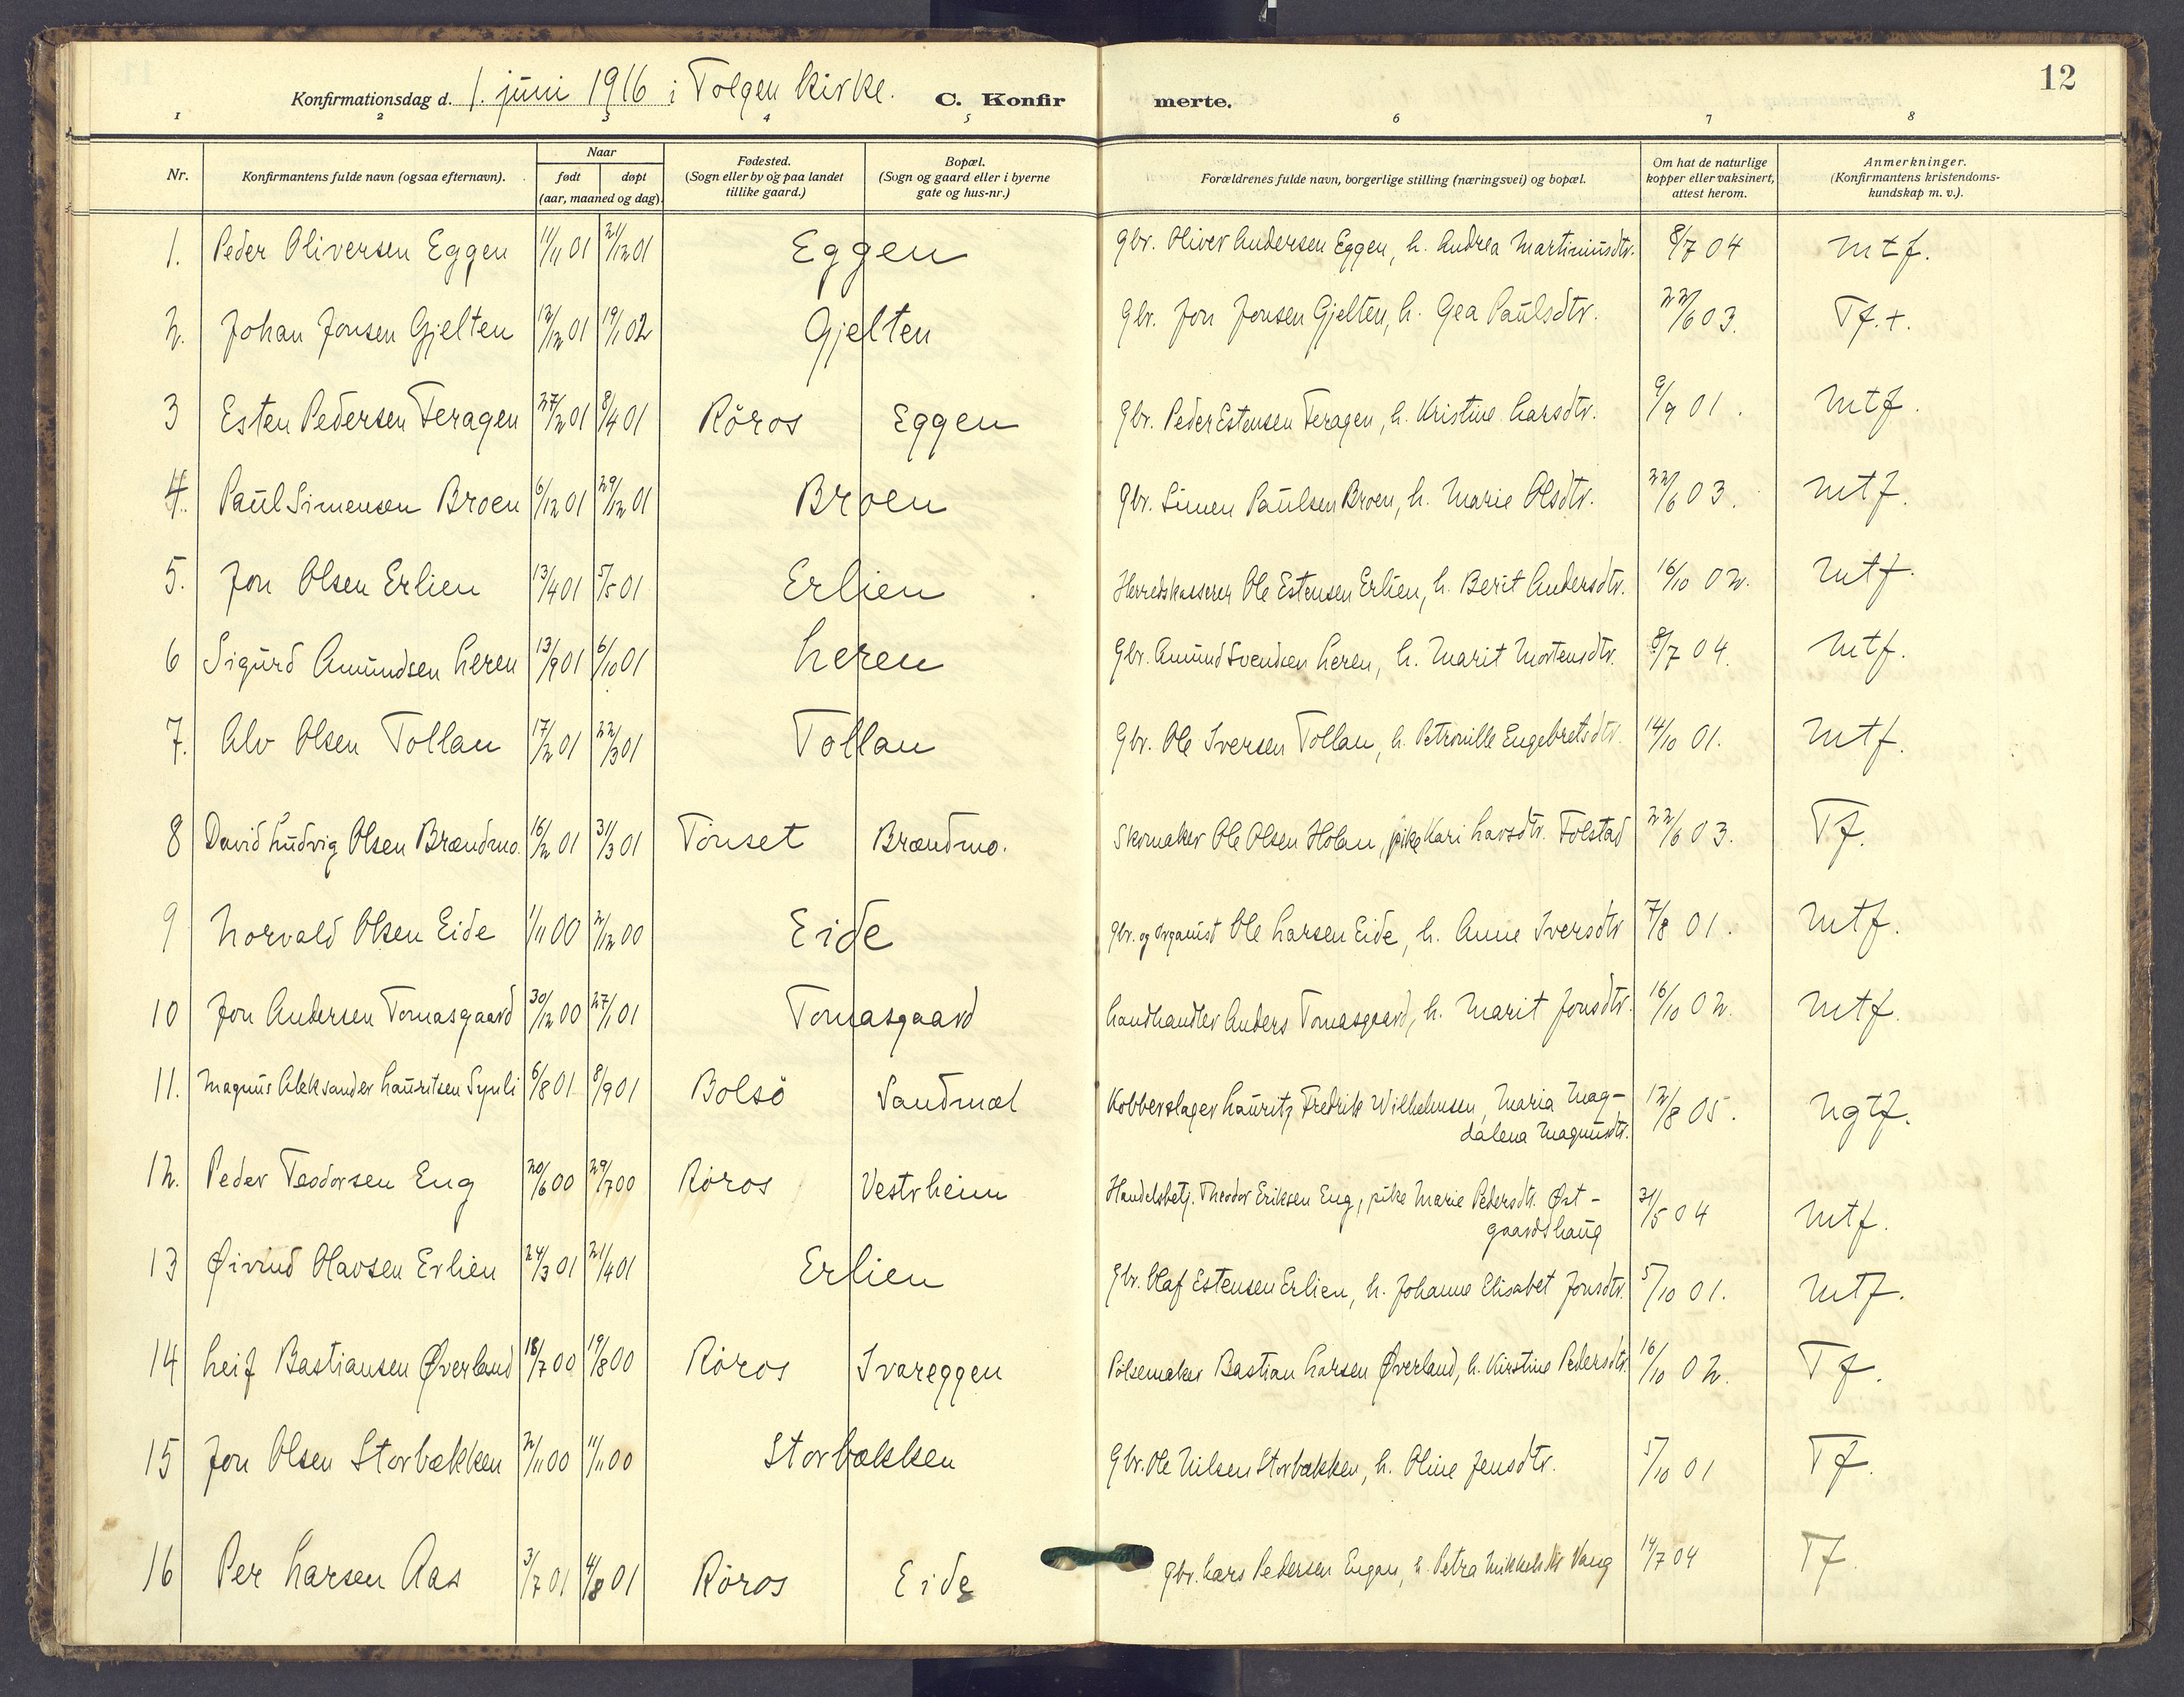 12
Konfirmationsdag d. 1. juni 1916 i Tolgen kirke. C. Konfir merte.
1 2 3 4 5 6 7 8
Nr. Konfirmantens fulde navn (ogsaa efternavn). Naar født døpt (aar, maaned og dag). Fødested. (Sogn eller by og paa landet tillike gaard.) Bopæl. (Sogn og gaard eller i byerne gate og hus-nr.) Forældrenes fulde navn, borgerlige stilling (næringsvei) og bopæl. Om hat de naturlige kopper eller vaksinert, attest herom. Anmerkninger. (Konfirmantens kristendoms-kundskap m. v.).
1. Peder Oliversen Eggen 11/11 01 21/12 01 Eggen Gbr. Oliver Andersen Eggen, h. Andrea Martinusdtr. 8/7 04 Mtf.
2. Johan Jonsen Gjelten 12/12 01 19/1 02 Gjelten Gbr. Jon Jonsen Gjelten, h. Gea Paulsdtr. 22/6 03. Tf. +.
3 Esten Pedersen Feragen 27/2 01 8/4 01 Röros Eggen Gbr. Peder Estensen Feragen, h. Kristine Larsdtr. 9/9 01. Mtf.
4. Paul Simensen Broen 6/12 01 29/12 01 Broen Gbr. Simen Paulsen Broen, h. Marie Olsdtr. 22/6 03. Mtf.
5. Jon Olsen Erlien 13/4 01 5/5 01 Erlien Herredskasserer Ole Estensen Erlien, h. Berit Andersdtr. 16/10 02. Mtf.
6 Sigurd Amundsen Leren 13/9 01 6/10 01 Leren Gbr. Amund Svendsen Leren, h. Marit Mortensdtr. 8/7 04. Mtf.
7. Alv Olsen Tollan 17/2 01 22/3 01 Tollan Gbr. Ole Iversen Tollan, h. Petronille Engebretsdtr. 14/10 01. Mtf.
8 David Ludvig Olsen Brændmo. 16/2 01 31/3 01 Tönset Brændmo. Skomaker Ole Olsen Holan, pike Kari Larsdtr. Tolstad 22/6 03. Tf.
9 Norvald Olsen Eide 1/11 00 2/12 00 Eide Gbr. og organist Ole Larsen Eide, h. Anne Iversdtr 7/8 01. Mtf.
10 Jon Andersen Tomasgaard 30/12 00 27/1 01 Tomasgaard Landhandler Anders Tomasgaard, h. Marit Jonsdtr. 16/10 02. Mtf.
11. Magnus Aleksander Lauritsen 6/8 01 8/9 01 Bolsö Sandmæl Kobberslager Lauritz Fredrik Wilhelmsen, Maria Mag-
dalena Magnusdtr. 12/8 05. Ngtf.
12. Peder Teodorsen Eng 20/6 00 29/7 00 Röros Vestrheim Handelsbetj. Theodor Eriksen Eng, pike Marie Pedersdtr. Øst-
gaardshaug 31/5 04 Mtf.
13 Øivind Olavsen Erlien 24/3 01 21/4 01 Erlien Gbr. Olaf Estensen Erlien, h. Johanne Elisabet Jonsdtr. 5/10 01. Mtf.
14 Leif Bastiansen Øverland 18/7 00 19/8 00 Röros Ivareggen Pölsemaker Bastian Larsen Øverland, h. Kirstine Pedersdtr. 16/10 02. Tf.
15 Jon Olsen Storbækken 2/11 00 11/11 00 Storbækken Gbr. Ole Nilsen Storbækken, h. Oline Jensdtr. 5/10 01 Tf.
16 Per Larsen Aas 3/7 01 4/8 01 Röros Eide Gbr. Lars Pedersen Engan, h. Petra Mikkelsdtr Vang 14/7 04 Tf.